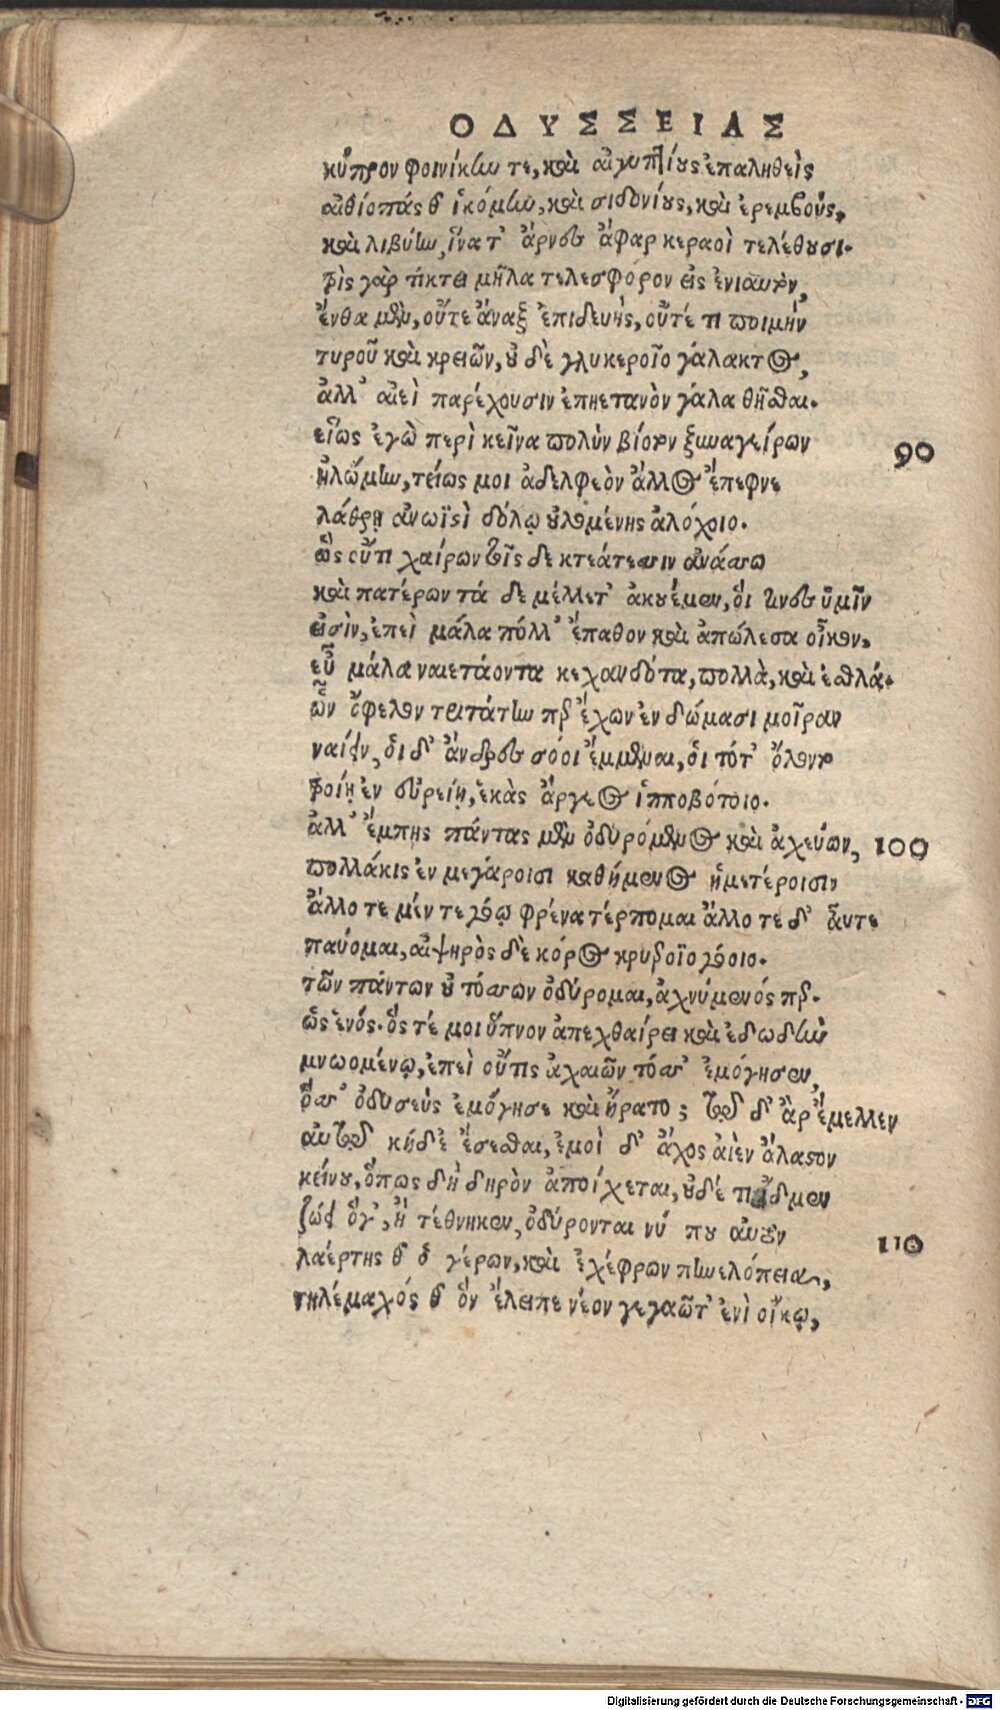 ΟΔΥΣΣΕΙΑΣ
κύπρον φοινίκην τε, καὶ αἰγυπτίους ἐπαληθεὶς
αἰθίοπάς θ' ἱκόμην, καὶ σιδονίους, καὶ ἐρεμβοὺς,
καὶ λιβύην, ἵνα τ' ἄρνες ἄφαρ κεραοὶ τελέθουσι.
τρὶς γὰρ τίκτει μῆλα τελεσφόρον εἰς ἐνιαυτὸν,
ἔνθα μὲν, οὔτε ἄναξ ἐπιδευὴς, οὔτέ τι ποιμὴν
τυροῦ καὶ κρειῶν, οὐδὲ γλυκεροῖο γάλακτος,
ἀλλ' αἰεὶ παρέχουσιν ἐπηετανὸν γάλα θῆσθαι.
εἵως ἐγὼ περὶ κεῖνα πολὺν βίοτον ξυναγείρων
90
ἠλώμην, τείως μοι ἀδελφεὸν ἄλλος ἔπεφνε
λάθρῃ ἀνωϊστὶ δόλῳ οὐλομένης ἀλόχοιο.
ὣς οὔτι χαίρων τοῖσδε κτεάτεσσιν ἀνάσσω
καὶ πατέρων τά δε μέλλετ' ἀκουέμεν, ὅι τινες ὑμῖν
εἰσὶν, ἐπεὶ μάλα πόλλ' ἔπαθον καὶ ἀπώλεσα οἶκον,
εὖ μάλα ναιετάοντα κεχανδότα, πολλὰ, καὶ ἐσθλά.
ὧν ὄφελον τριτάτην περ ἔχων ἐν δώμασι μοῖραν
ναίειν, ὁι δ' ἄνδρες σόοι ἔμμεναι, ὁι τότ' ὄλοντο
τροίῃ ἐν εὐρείῃ, ἑκὰς ἄργεος ἱπποβότοιο.
ἀλλ' ἔμπης πάντας μὲν ὀδυρόμενος καὶ ἀχεύων,
100
πολλάκις ἐν μεγάροισι καθήμενος ἡμετέροισιν
ἄλλο τε μέν τε γόῳ φρένα τέρπομαι ἄλλο τε δ' αὖτε
παύομαι, αἰψηρὸς δὲ κόρος κρυεροῖο γόοιο.
τῶν πάντων οὐ τόσσον ὀδύρομαι, ἀχνύμενός περ.
ὡς ἑνός. ὅς τέ μοι ὕπνον ἀπεχθαίρει καὶ ἐδωδὴν
μνωομένῳ, ἐπεὶ οὔτις ἀχαιῶν τόσσ' ἐμόγησεν,
ὅσσ' ὀδυσεὺς ἐμόγησε καὶ ἤρατο; τῷ δ' ἂρ ἔμελλεν
αὐτῷ κήδε' ἔσεσθαι, ἐμοὶ δ' ἄχος αἰὲν ἄλαστον
κείνου, ὅπως δὴ δηρὸν ἀποίχεται, οὐδέ τι ἴδμεν
ζώει ὅγ', ἢ τέθνηκεν, ὀδύρονται νύ που αὐτὸν
110
λαέρτης θ' ὁ γέρων, καὶ ἐχέφρων πηνελόπεια,
τηλέμαχός θ' ὃν ἔλειπε νέον γεγαῶτ' ἐνὶ οἴκῳ,
Digitalisierung gefördert durch die Deutsche Forschungsgemeinschaft - DFG